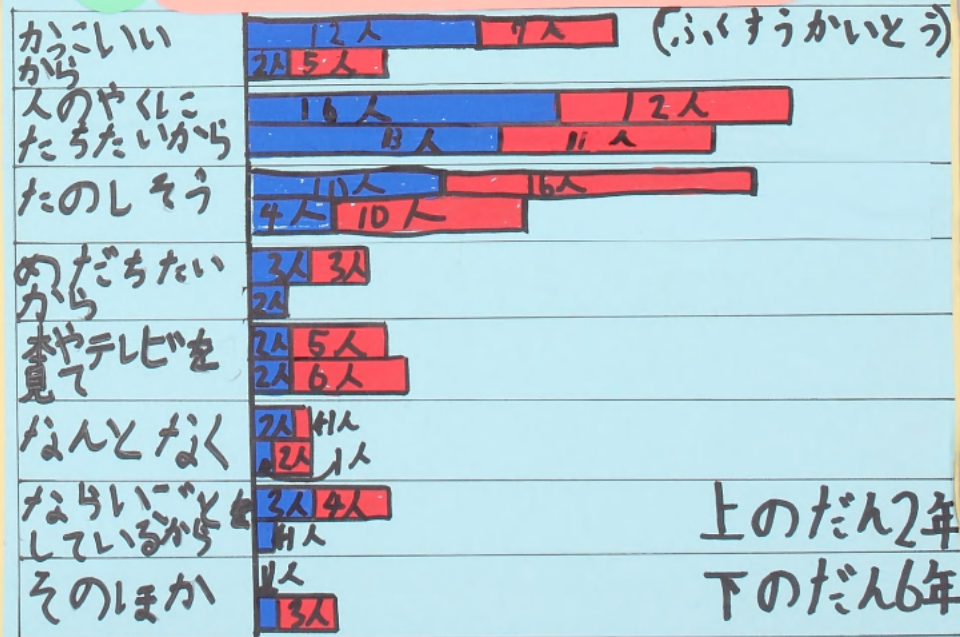 かっこいい
から
12人 7人
2人 5人
(ふくすうかいとう)
人のやくに
たちたいから
16人 12人
13人 11人
たのしそう
10人 16人
4人 10人
めだちたい
から
3人 3人
2人
本やテレビを
見て
2人 5人
2人 6人
なんとなく
2人 1人
2人 1人
ならいごとを
しているから
3人 4人
1人
上のだん2年
そのほか
1人
3人
下のだん6年